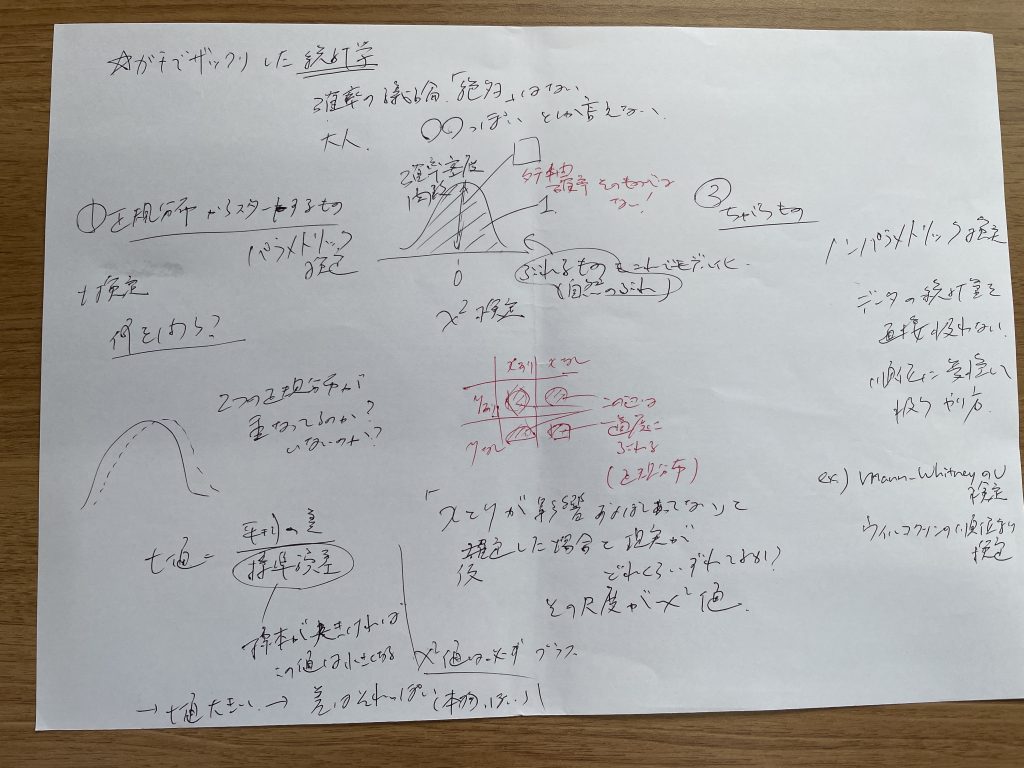 ☆ガチでザックリした統計学
確率の議論.「絶対」はない
大人. ○○っぽい としか言えない.
確率密度
関数
タテ軸は
確率そのものでは
ない!
1
0
①正規分布からスタートするもの
パラメトリック
検定
ぶれるものをこれでモデル化
(自然のぶれ)
t検定
何をしたら?
2つの正規分布が
重なってるのか?
いないのか?
t値 = 平均の差
標準誤差
標本が大きければ
この値は小さくなる
→ t値大きい → 差はそれっぽい(本物っぽい)
χ²検定
xあり xなし
yあり
yなし
この辺は
適度に
ぶれる
(正規分布)
「xとyが影響およぼしあってない」と
仮定した場合と現実が
どれくらいずれてるか?
その尺度がχ²値.
χ²値は必ずプラス
②ちがうもの
ノンパラメトリック検定
データの統計量を
直接扱わない
順位に変換して
扱うやり方.
ex) Mann-WhitneyのU
検定
ウィルコクソンの順位和
検定